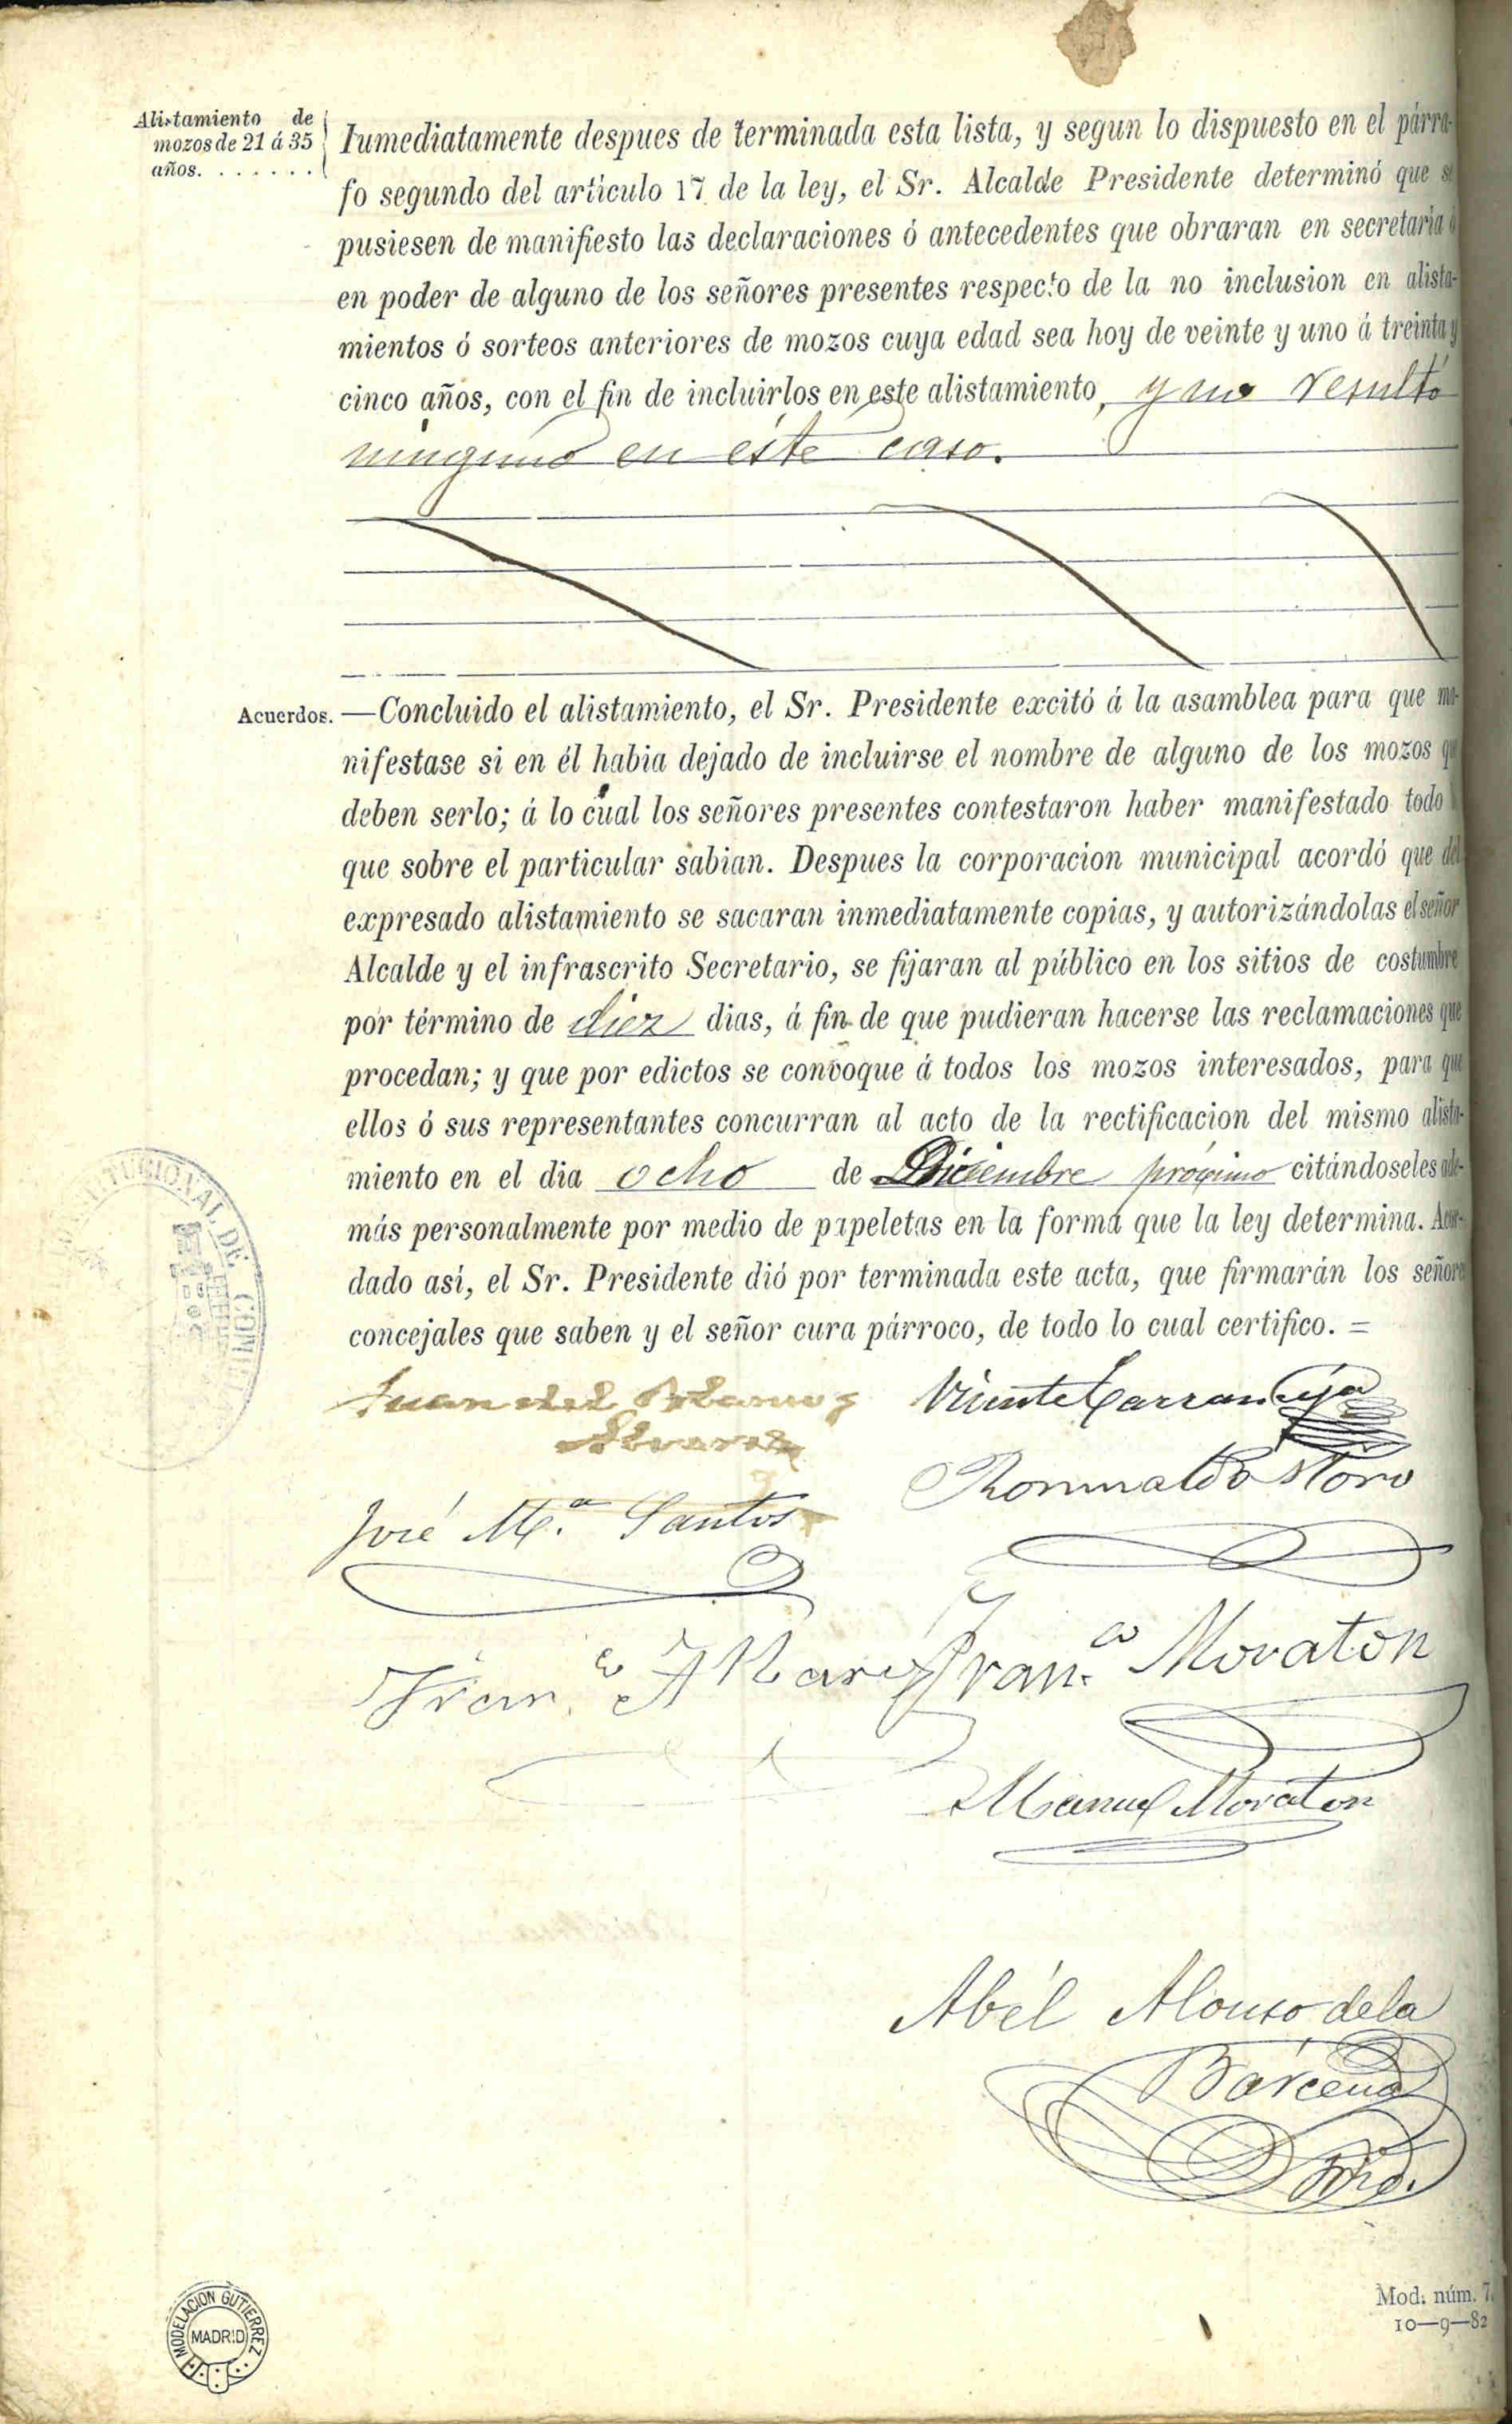 Alistamiento de
mozos de 21 á 35
años. . . . . . .
Iumediatamente despues de terminada esta lista, y segun lo dispuesto en el párra-
fo segundo del artículo 17 de la ley, el Sr. Alcalde Presidente determinó que se
pusiesen de manifiesto las declaraciones ó antecedentes que obraran en secretaría ó
en poder de alguno de los señores presentes respecto de la no inclusion en alista-
mientos ó sorteos anteriores de mozos cuya edad sea hoy de veinte y uno á treinta y
cinco años, con el fin de incluirlos en este alistamiento, y no resultó
ninguno en éste caso.
Acuerdos. —Concluido el alistamiento, el Sr. Presidente excitó á la asamblea para que ma-
nifestase si en él habia dejado de incluirse el nombre de alguno de los mozos que
deben serlo; á lo cual los señores presentes contestaron haber manifestado todo
que sobre el particular sabian. Despues la corporacion municipal acordó que del
expresado alistamiento se sacaran inmediatamente copias, y autorizándolas el señor
Alcalde y el infrascrito Secretario, se fijaran al público en los sitios de costumbre
por término de diez dias, á fin de que pudieran hacerse las reclamaciones que
procedan; y que por edictos se convoque á todos los mozos interesados, para que
ellos ó sus representantes concurran al acto de la rectificacion del mismo alista-
miento en el dia ocho de Diciembre próximo citándoseles ade-
más personalmente por medio de papeletas en la forma que la ley determina. Acor-
dado así, el Sr. Presidente dió por terminada este acta, que firmarán los señores
concejales que saben y el señor cura párroco, de todo lo cual certifico. =
Juan del Alamo y Vicente Carrascosa
Alvarez
Romualdo Moro
José M.ª Santos
Fran.co Alvarez Fran.co Moraton
Manuel Moraton
Abél Alonso de la
Bárcena
Srio.
CONSTITUCIONAL DE
MODELACION GUTIERREZ
MADRID
Mod. núm. 7.
10—9—82